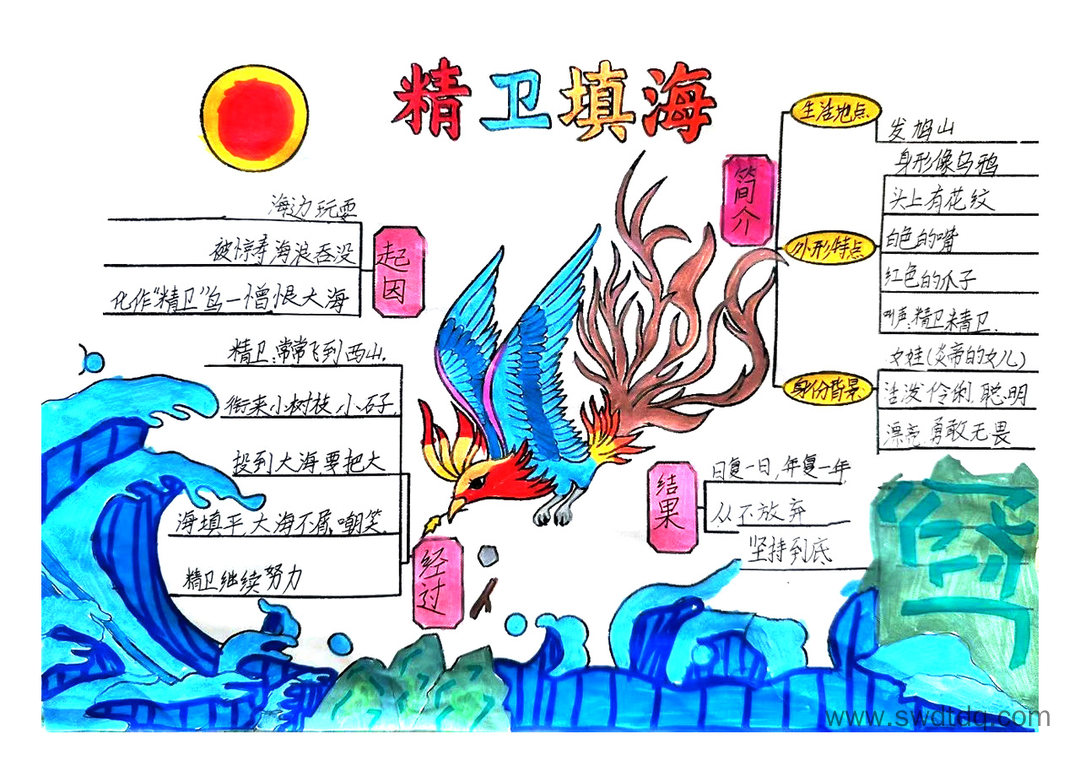 精卫填海
简介
生活地点
发旭山
外形特点
身形像乌鸦
头上有花纹
白色的嘴
红色的爪子
叫声:精卫,精卫.
身份背景
女娃(炎帝的女儿)
活泼伶俐 聪明
漂亮 勇敢无畏
起因
海边玩耍
被惊寿海浪吞没
化作"精卫"鸟一憎恨大海
经过
精卫:常常飞到西山,
衔来小树枝,小石子
投到大海要把大
海填平,大海不屑,嘲笑.
精卫继续努力
结果
日复一日,年复一年
从不放弃
坚持到底
www.swdtdq.com